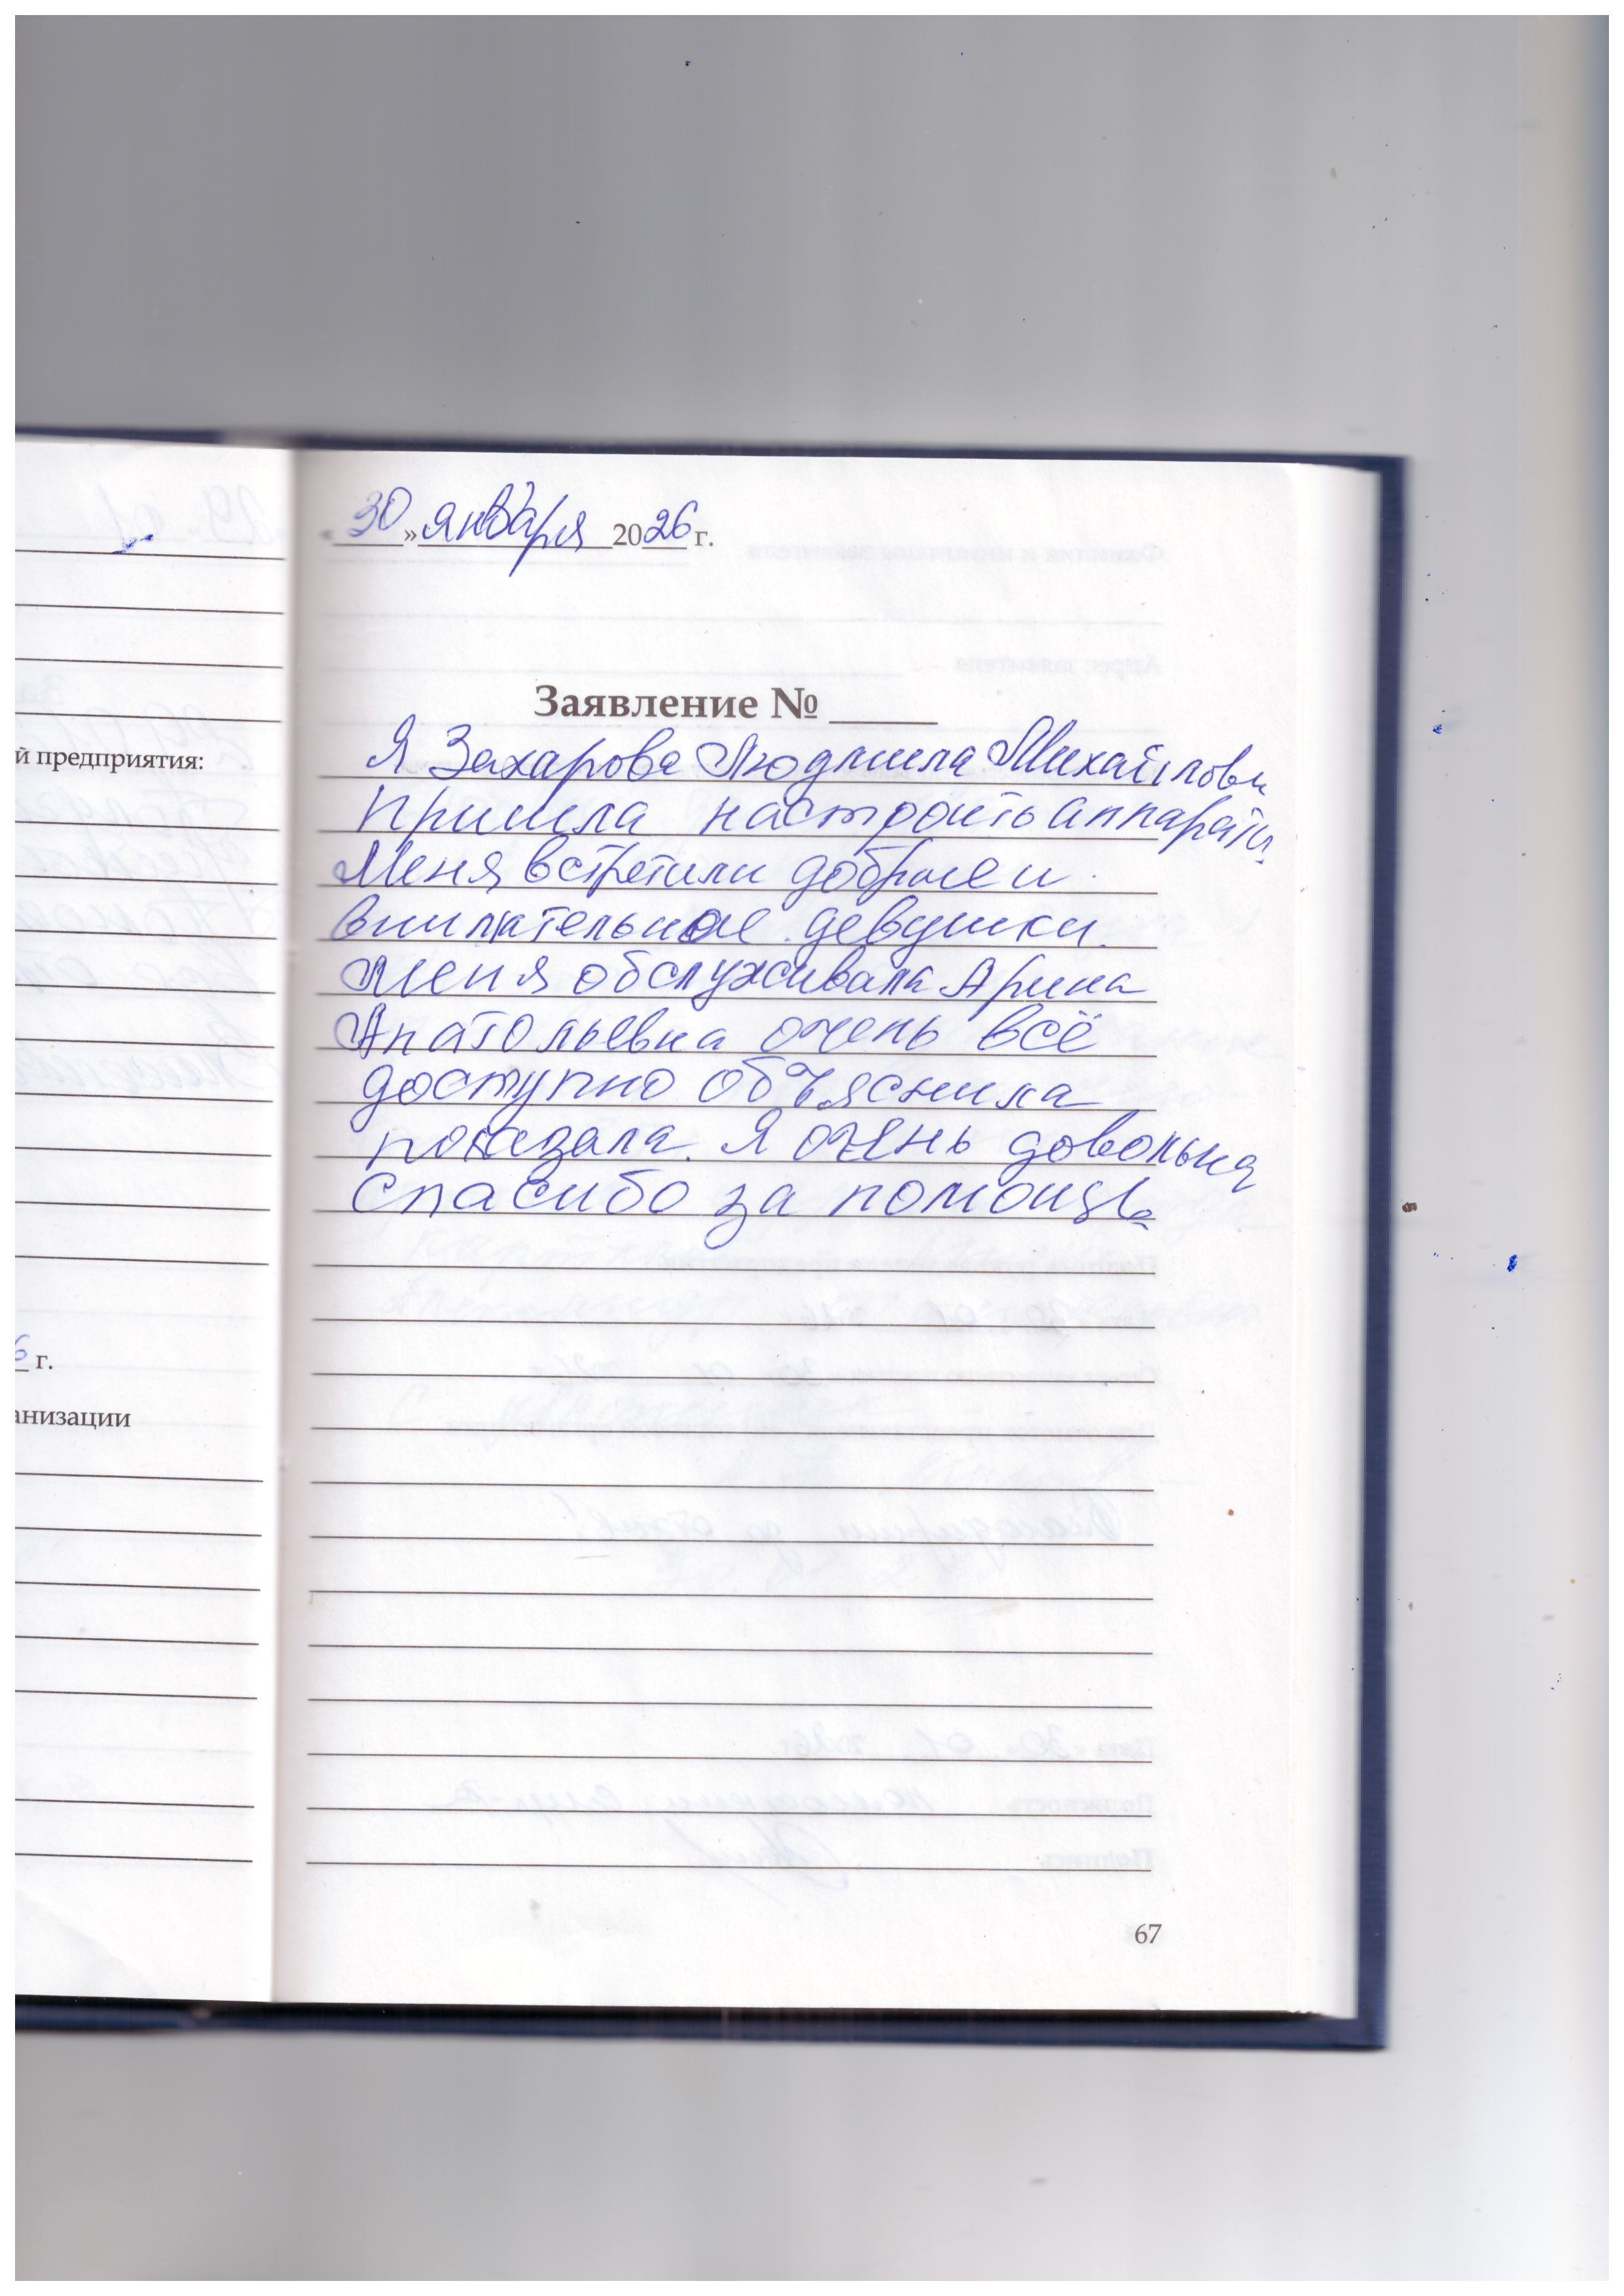 « 30 » января 2026 г.
Заявление № ____
Я Захарова Людмила Михайловн
пришла настроить аппараты
Меня встретили добрые и
внимательные девушки.
Меня обслуживала Арина
Анатольевна очень всё
доступно объяснила
показала. Я очень довольна
Спасибо за помощь
й предприятия:
6 г.
анизации
67